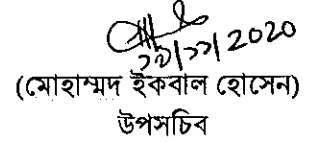 /১১/2020
(মোহাম্মদ ইকবাল হোসেন)
উপসচিব